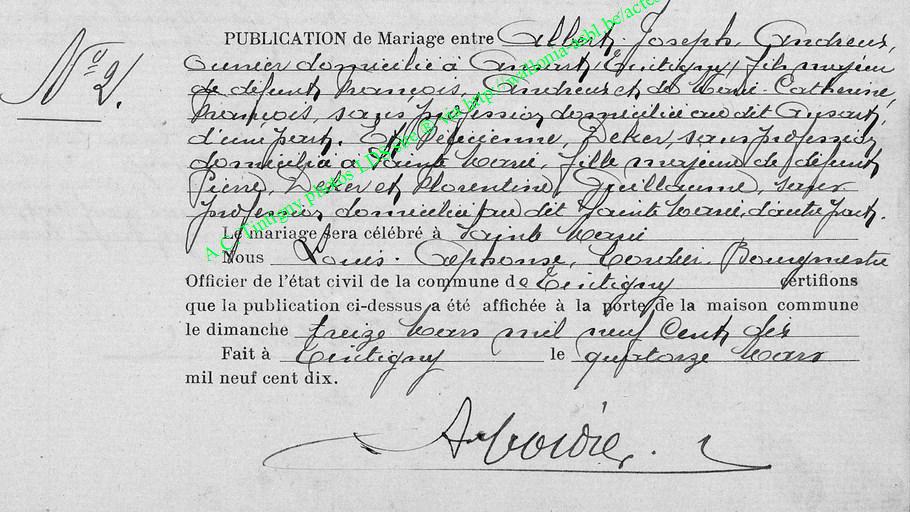 N° 2.
PUBLICATION de Mariage entre Albert, Joseph, Andreux,
ouvrier domicilié à Ansart, (Tintigny) fils majeur
de défunt François, Andreux et de Marie-Catherine,
François, sans profession domiciliée au dit Ansart,
d'une part. Et Félicienne, Deker, sans profession,
domiciliée à Sainte Marie, fille majeure de défunt
Pierre, Deker et Florentine, Guillaume, sans
profession domiciliée au dit Sainte Marie, d'autre part.
Le mariage sera célébré à Sainte Marie
Nous Louis-Alphonse, Cordier, Bourgmestre
Officier de l'état civil de la commune de Tintigny certifions
que la publication ci-dessus a été affichée à la porte de la maison commune
le dimanche treize Mars mil neuf Cent dix
Fait à Tintigny le quatorze Mars
mil neuf cent dix.
A. Cordier.
A.C. Tintigny photos LDS site © via http://wallonia-asbl.be/actes